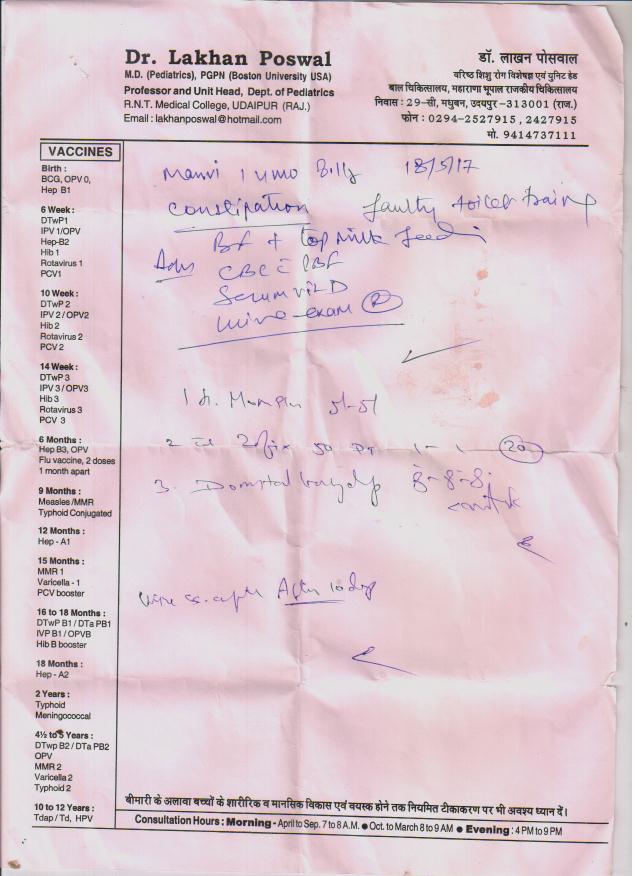 Dr. Lakhan Poswal
M.D. (Pediatrics), PGPN (Boston University USA)
Professor and Unit Head, Dept. of Pediatrics
R.N.T. Medical College, UDAIPUR (RAJ.)
Email : lakhanposwal@hotmail.com
डॉ. लाखन पोसवाल
वरिष्ठ शिशु रोग विशेषज्ञ एवं युनिट हेड
बाल चिकित्सालय, महाराणा भूपाल राजकीय चिकित्सालय
निवास : 29-सी, मधुबन, उदयपुर-313001 (राज.)
फोन : 0294-2527915, 2427915
मो. 9414737111
VACCINES
Birth :
BCG, OPV 0,
Hep B1
6 Week :
DTwP1
IPV 1/OPV
Hep-B2
Hib 1
Rotavirus 1
PCV1
10 Week :
DTwP 2
IPV 2 / OPV2
Hib 2
Rotavirus 2
PCV 2
14 Week :
DTwP 3
IPV 3 / OPV3
Hib 3
Rotavirus 3
PCV 3
6 Months :
Hep B3, OPV
Flu vaccine, 2 doses
1 month apart
9 Months :
Measles /MMR
Typhoid Conjugated
12 Months :
Hep - A1
15 Months :
MMR 1
Varicella - 1
PCV booster
16 to 18 Months :
DTwP B1 / DTa PB1
IVP B1 / OPVB
Hib B booster
18 Months :
Hep - A2
2 Years :
Typhoid
Meningococcal
4½ to 5 Years :
DTwp B2 / DTa PB2
OPV
MMR 2
Varicella 2
Typhoid 2
10 to 12 Years :
Tdap / Td, HPV
Manvi 18/5/17
Constipation faulty toilet training
BF + top milk feeding
Adv CBC c PBF
Serum vit D
urine exam (R)
1
2 50 DT 1 - 1 20
3.
After 10 days
बीमारी के अलावा बच्चों के शारीरिक व मानसिक विकास एवं वयस्क होने तक नियमित टीकाकरण पर भी अवश्य ध्यान दें।
Consultation Hours : Morning - April to Sep. 7 to 8 A.M. ● Oct. to March 8 to 9 AM ● Evening : 4 PM to 9 PM